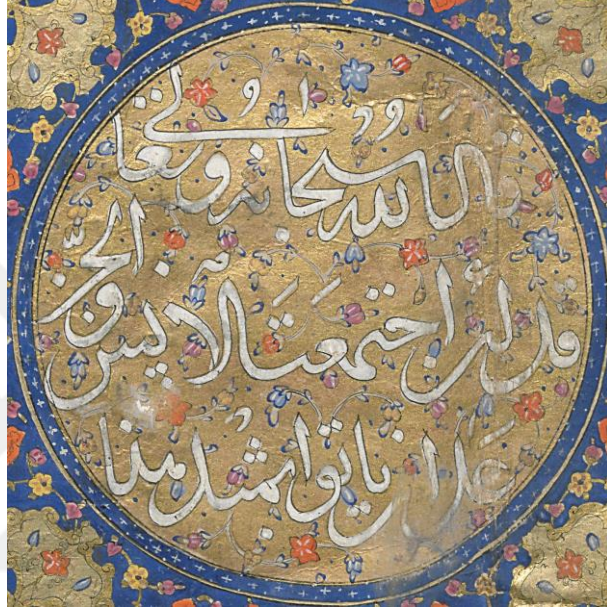 قال الله سبحانه وتعالى
قل لئن اجتمعت الانس والجن
على ان ياتوا بمثل هذا